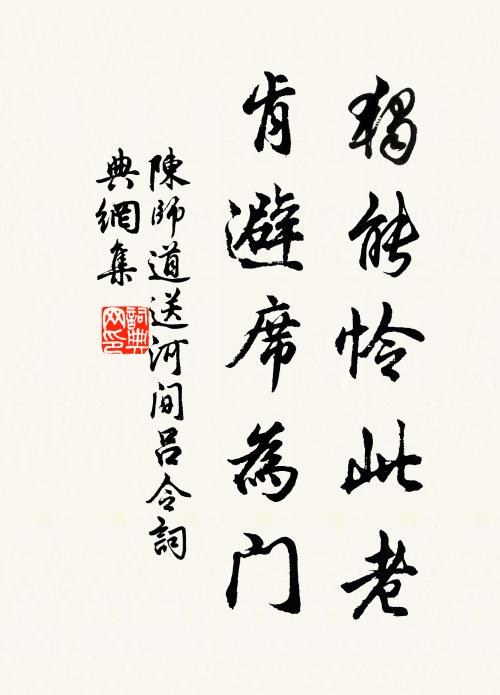 獨能怜此老
肯避席為門
陳師道送河間呂令詞
典網集
詞典
网印